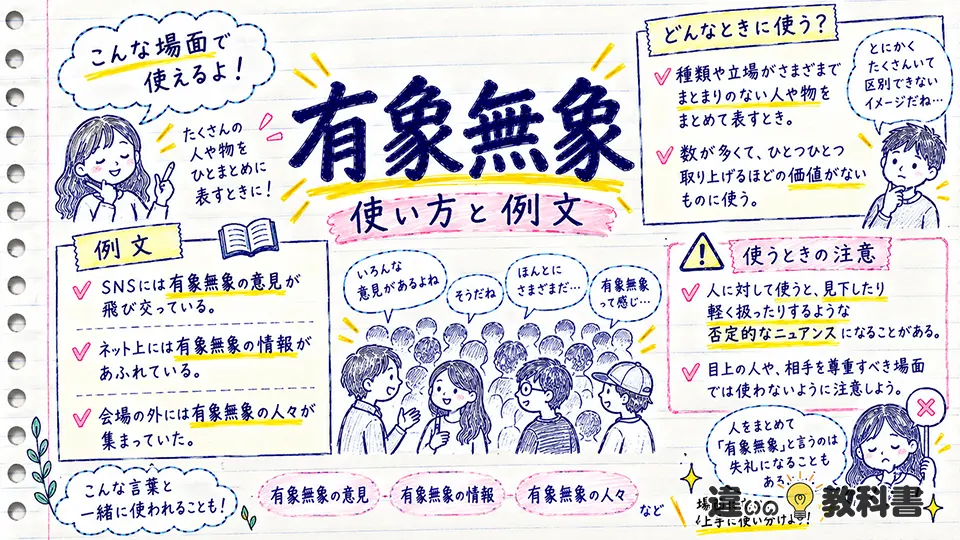 こんな場面で
使えるよ！
たくさんの
人や物を
ひとまとめに
表すときに！
有象無象
使い方と例文
どんなときに使う？
種類や立場がさまざまで
まとまりのない人や物を
まとめて表すとき。
数が多くて、ひとつひとつ
取り上げるほどの価値がない
ものに使う。
とにかく
たくさんいて
区別できない
イメージだね…
例文
SNSには有象無象の意見が
飛び交っている。
ネット上には有象無象の情報が
あふれている。
会場の外には有象無象の人々が
集まっていた。
いろんな
意見があるよね
そうだね
ほんとに
さまざまだ…
有象無象
って感じ…
使うときの注意
人に対して使うと、見下したり
軽く扱ったりするような
否定的なニュアンスになることがある。
目上の人や、相手を尊重すべき場面
では使わないように注意しよう。
人をまとめて
「有象無象」と言うのは
失礼になることも
ある
こんな言葉と
一緒に使われることも！
有象無象の意見
有象無象の情報
有象無象の人々
など
場
上手に使い分けよ！
違いの教科書